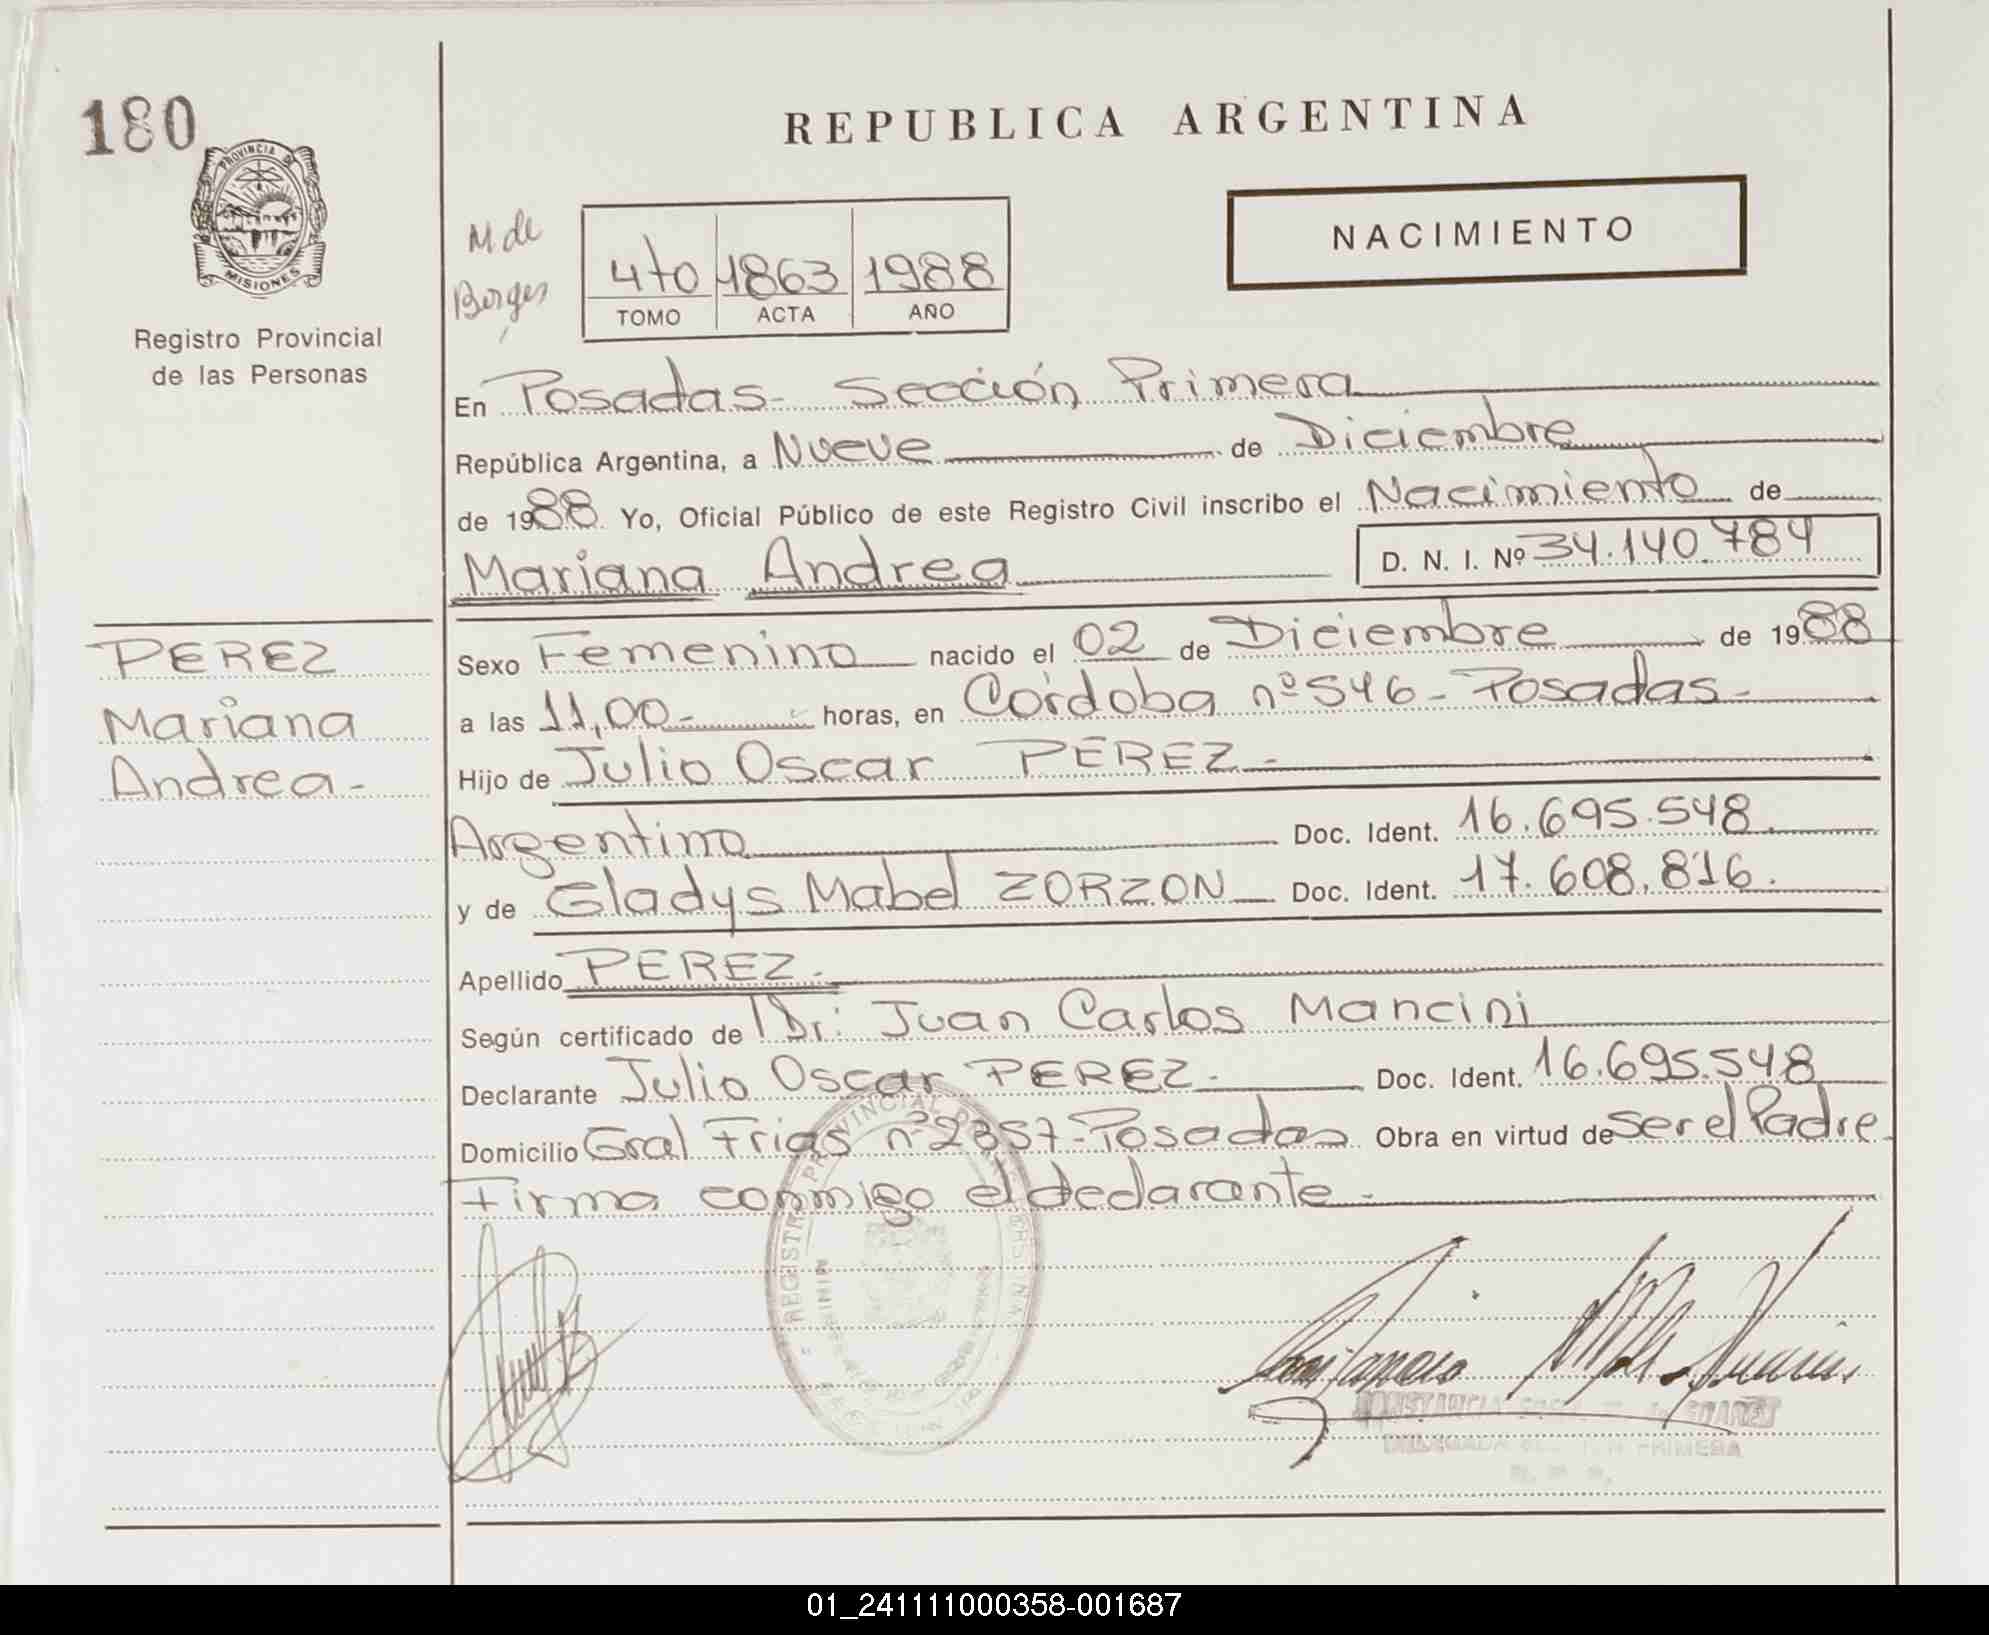 180
PROVINCIA DE
MISIONES
Registro Provincial
de las Personas
REPUBLICA ARGENTINA
NACIMIENTO
M de
Borges
4to 1863 1988
TOMO ACTA AÑO
En Posadas - Sección Primera
República Argentina, a Nueve de Diciembre
de 1988. Yo, Oficial Público de este Registro Civil inscribo el Nacimiento de
Mariana Andrea
D. N. I. Nº 34.140.784
PEREZ
Mariana
Andrea -
Sexo Femenino nacido el 02 de Diciembre de 1988
a las 11,00 - horas, en Córdoba nº 546 - Posadas -
Hijo de Julio Oscar PEREZ -
Argentino Doc. Ident. 16.695.548
y de Gladys Mabel ZORZON Doc. Ident. 17.608.816.
Apellido PEREZ -
Según certificado de Dr. Juan Carlos Mancini
Declarante Julio Oscar PEREZ - Doc. Ident. 16.695.548
Domicilio Gral Frias nº 2357 - Posadas Obra en virtud de ser el Padre
Firma conmigo el declarante -
REGISTRO PROVINCIAL DE LAS PERSONAS
DELEGADA SECCION PRIMERA
01_241111000358-001687